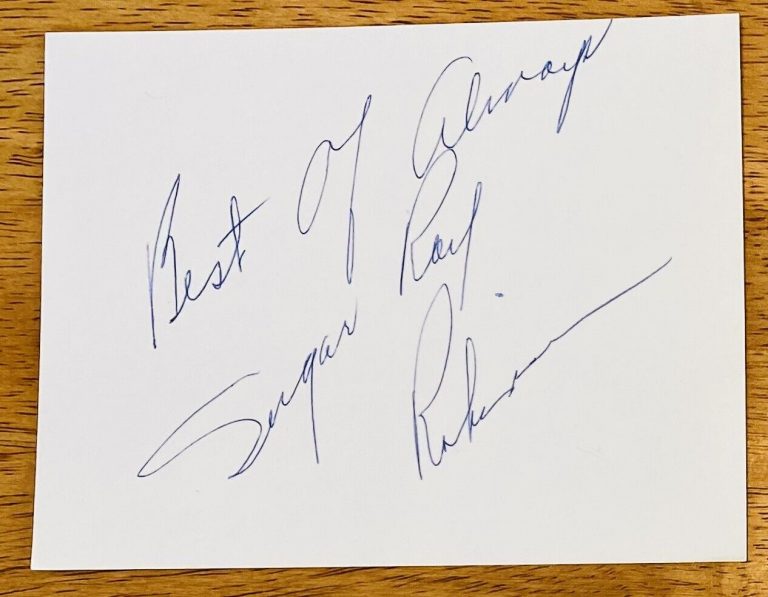 Best Of Always
Sugar Ray
Robinson